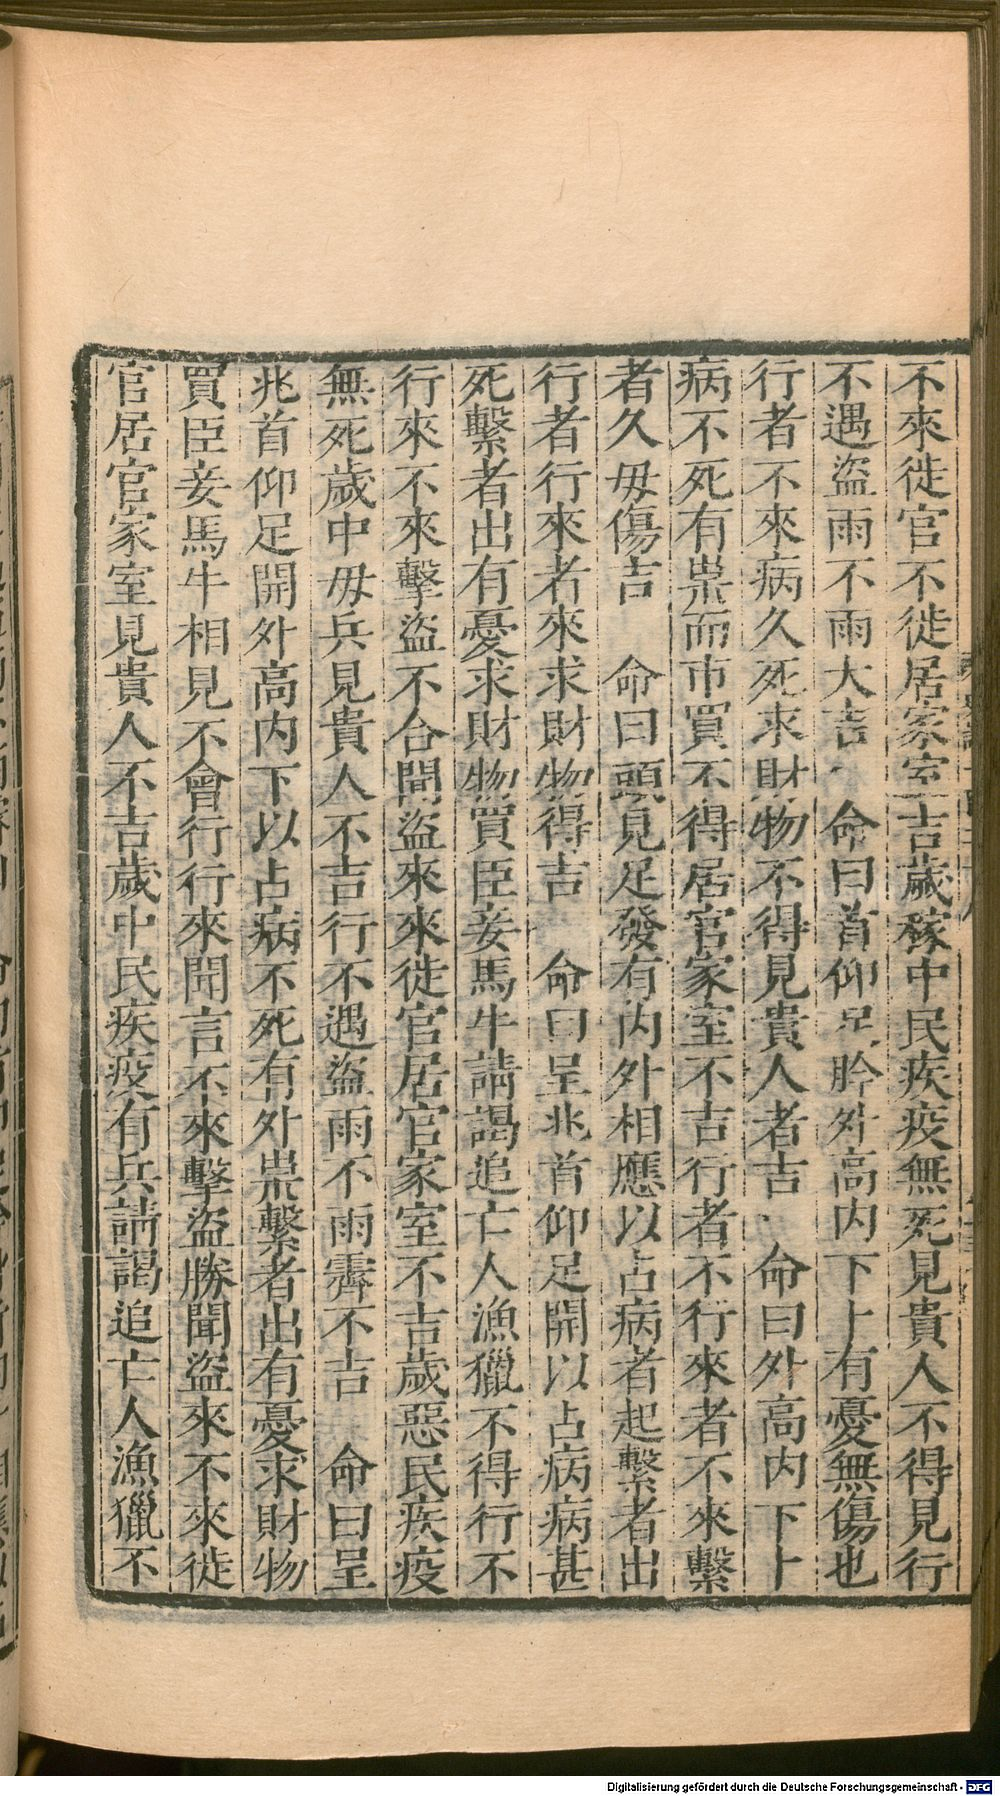 不來徙官不徙居家室吉歲稼中民疾疫無死見貴人不得見行
不遇盜雨不雨大吉　命曰首仰足肣外高内下卜有憂無傷也
行者不來病久死求財物不得見貴人者吉　命曰外高内下卜
病不死有祟而市買不得居官家室不吉行者不行來者不來繫
者久毋傷吉　命曰頭見足發有内外相應以占病者起繫者出
行者行來者來求財物得吉　命曰呈兆首仰足開以占病病甚
死繫者出有憂求財物買臣妾馬牛請謁追亡人漁獵不得行不
行來不來擊盜不合聞盜來來徙官居官家室不吉歲惡民疾疫
無死歲中毋兵見貴人不吉行不遇盜雨不雨霽不吉　命曰呈
兆首仰足開外高内下以占病不死有外祟繫者出有憂求財物
買臣妾馬牛相見不會行行來聞言不來擊盜勝聞盜來不來徙
官居官家室見貴人不吉歲中民疾疫有兵請謁追亡人漁獵不
Digitalisierung gefördert durch die Deutsche Forschungsgemeinschaft - DFG